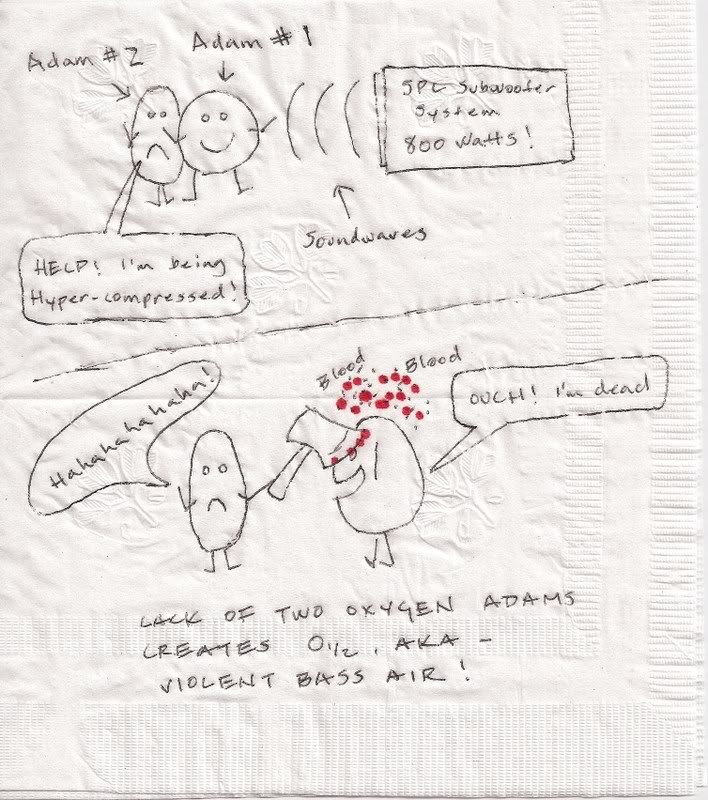 Adam #2
Adam #1
SPL Subwoofer
System
800 Watts!
Soundwaves
HELP! I'm being
Hyper-compressed!
Hahahahahaha!
Blood
Blood
OUCH! I'm dead
LACK OF TWO OXYGEN ADAMS
CREATES O1/2, AKA -
VIOLENT BASS AIR!